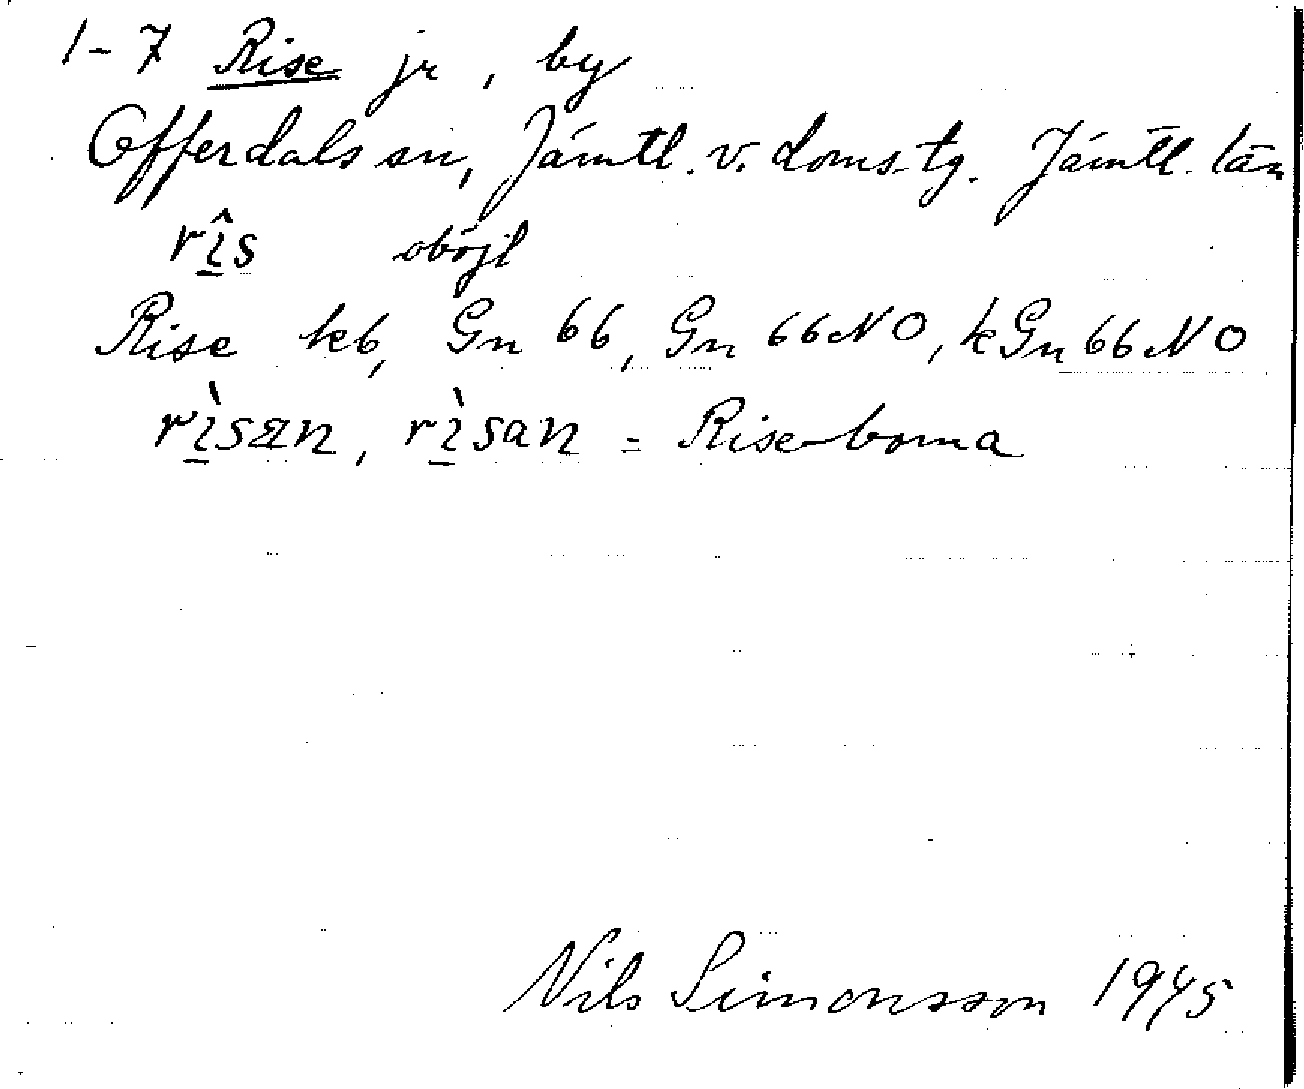 1-7 Rise jr, by
Offerdals sn, Jämtl. v. doms. tg. Jämtl. län
rîs oböjl
Rise kb, Gn 66, Gn 66 NO, kGn 66 NO
rìsæn, rìsan = Riseborna
Nils Simonsson 1945